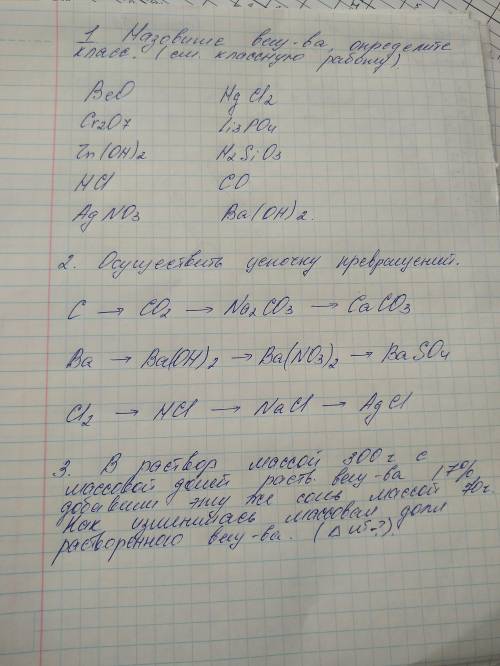 1 Назовите вещ-ва, определите
класс. (см. классную работу)
BeO HgCl2
Cr2O7 Li3PO4
Zn(OH)2 H2SiO3
HCl CO
AgNO3 Ba(OH)2.
2. Осуществить цепочку превращений.
C → CO2 → Na2CO3 → CaCO3
Ba → Ba(OH)2 → Ba(NO3)2 → BaSO4
Cl2 → HCl → NaCl → AgCl
3. В раствор массой 300г с
массовой долей раств. вещ-ва 17%,
добавили эту же соль массой 70г.
Как изменилась массовая доля
растворенного вещ-ва. (Δ w-?).